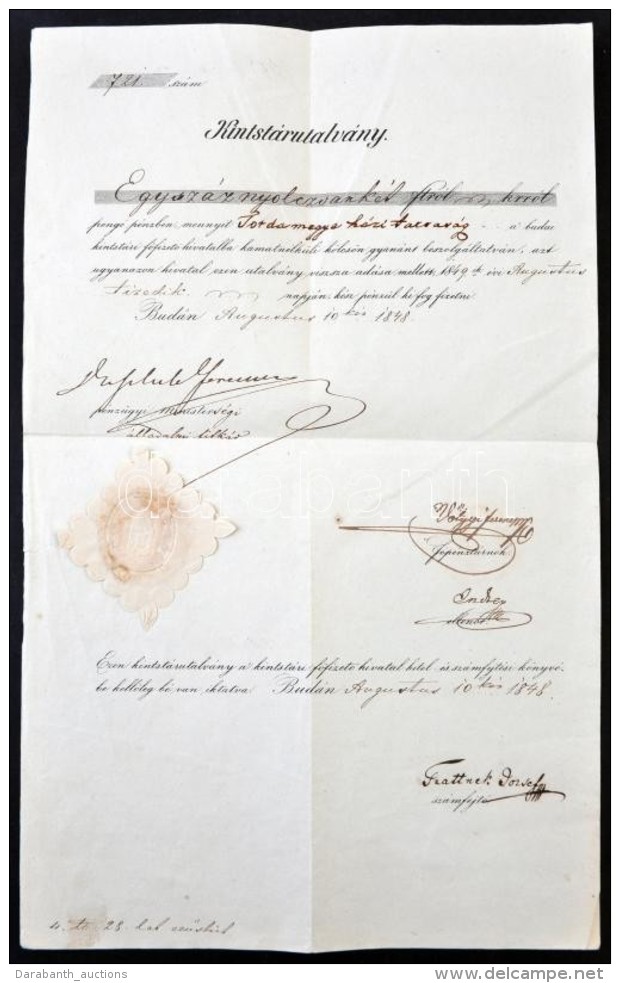 721. szám
Kintstárutalvány.
Egyszáznyolczvankét ftról krról
pengő pénzben, mennyit Tordamegye házi a budai
kintstári főfizető hivatalba kamatnélküli kölcsön gyanánt beszolgáltatván, azt
ugyanazon hivatal ezen utalvány vissza adása mellett 1849 ik évi Augustus
tizedik napján kész pénzül ki fog fizetni
Budán Augustus 10 kén 1848.
Ferencz
pénzügyi ministerségi
álladalmi titkár
Ferencz
főpénztárnok
ellenőr
Ezen kintstárutalvány a kintstári főfizető hivatal hitel és számfejtési könyvé-
be kellőleg bé van iktatva. Budán Augustus 10 kén 1848.
Trattnek József
számfejtő
darabanth
Darabanth_auctions
delcampe.net